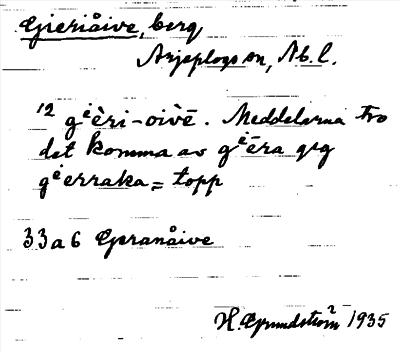 Gieriåive, berg
Arjeplogs sn, Åb. l.
12 gⁱèri-oivē. Meddelarna tro
det komma av gⁱēra
gⁱerraka = topp
33a6 Gieranåive
H. Grundström 1935